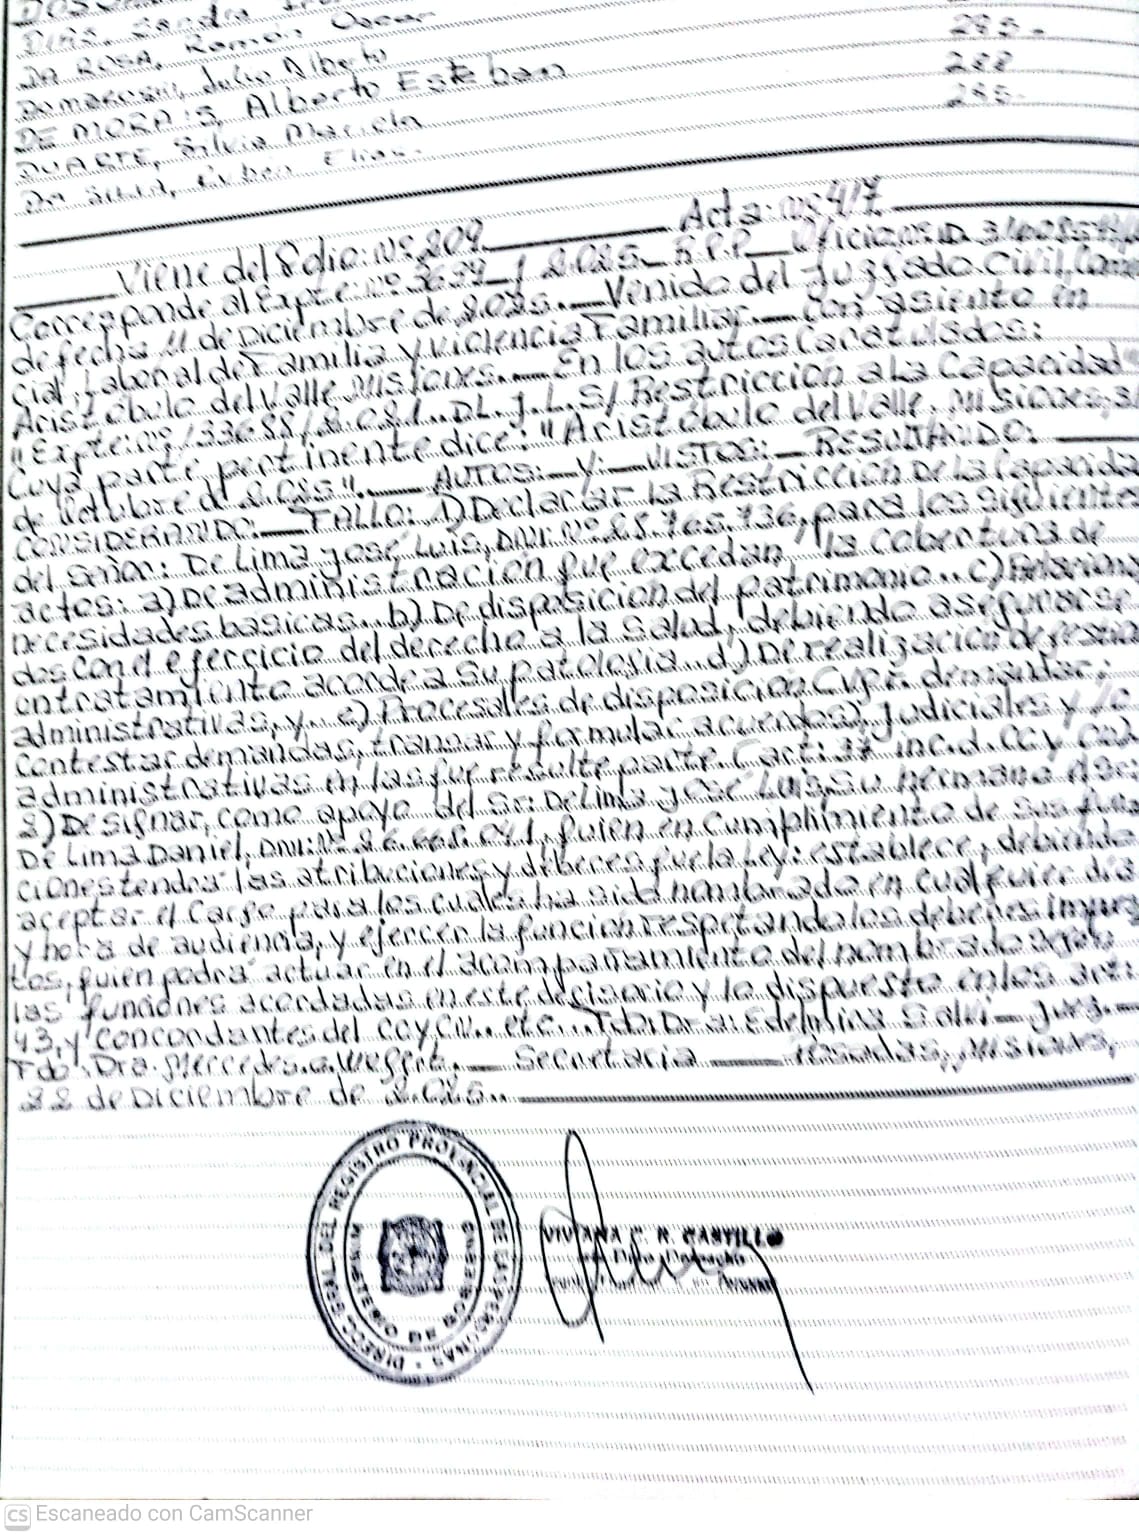 DIAS, Sandra
DA ROSA, Román Oscar 285.-
Damaressi, Julio Alberto 288
DE MORAIS, Alberto Esteban 285-
DUARTE, Silvia Mariela
Da Silva, Rubén Elias.
Viene del folio: Nº 209 Acta: Nº 417
Corresponde al Expte: Nº 3639 / 2.025 - R.P.P. - Oficio
de fecha 11 de Diciembre de 2.025.- Venido del Juzgado Civil, Comer
cial, Laboral de Familia y Violencia Familiar.- Con asiento en
Aristóbulo del Valle Misiones.- En los autos Caratulados:
"Expte: Nº 133688/2.021.. DL. J. L. S/ Restricción a la Capacidad
Cuya parte pertinente dice: "Aristóbulo del Valle, Misiones, 31
de Octubre de 2.025".- AUTOS:- Y:- VISTOS:- RESULTANDO:
CONSIDERANDO:- FALLO: 1) Declarar la Restricción de la Capacida
del Señor: De Lima José Luis, DNI: Nº 25.765.736, para los siguientes
actos: a) De administración que excedan la cobertura de
necesidades básicas.. b) De disposición del patrimonio.. c) Relaciona
dos con el ejercicio del derecho a la salud, debiendo asegurarse
en tratamiento acorde a su patología.. d) De realización de gestio
administrativas, y.. e) Procesales de disposición demandar;
Contestar demandas, transar y formular acuerdos), judiciales y/o
administrativas en las que resulte parte. (art: 37 inc. d. CCy
2) Designar, como apoyo del Sr: De Lima José Luis, su hermano
De Lima Daniel, DNI: Nº 26.668.041, quien en cumplimiento de sus fun
ciones tendrá las atribuciones y deberes que la Ley: establece, debiendo
aceptar el cargo para los cuales ha sido nombrado en cualquier dia
y hora de audiencia, y ejercer la función respetando los deberes impues
tos, quien podrá actuar en el acompañamiento del nombrado según
las funciones acordadas en este decisorio y lo dispuesto en los art:
43, y concordantes del CCyCN.. etc.. Fdo: Dra: Edelmira Salvi - Juez.-
Fdo: Dra. Mercedes.G.Weffer.- Secretaria Posadas, Misiones,
22 de Diciembre de 2.025..
DIRECC. GRAL. DEL REGISTRO PROVINCIAL DE LAS PERSONAS
VIVIANA C. R. CASTILLO
CS Escaneado con CamScanner